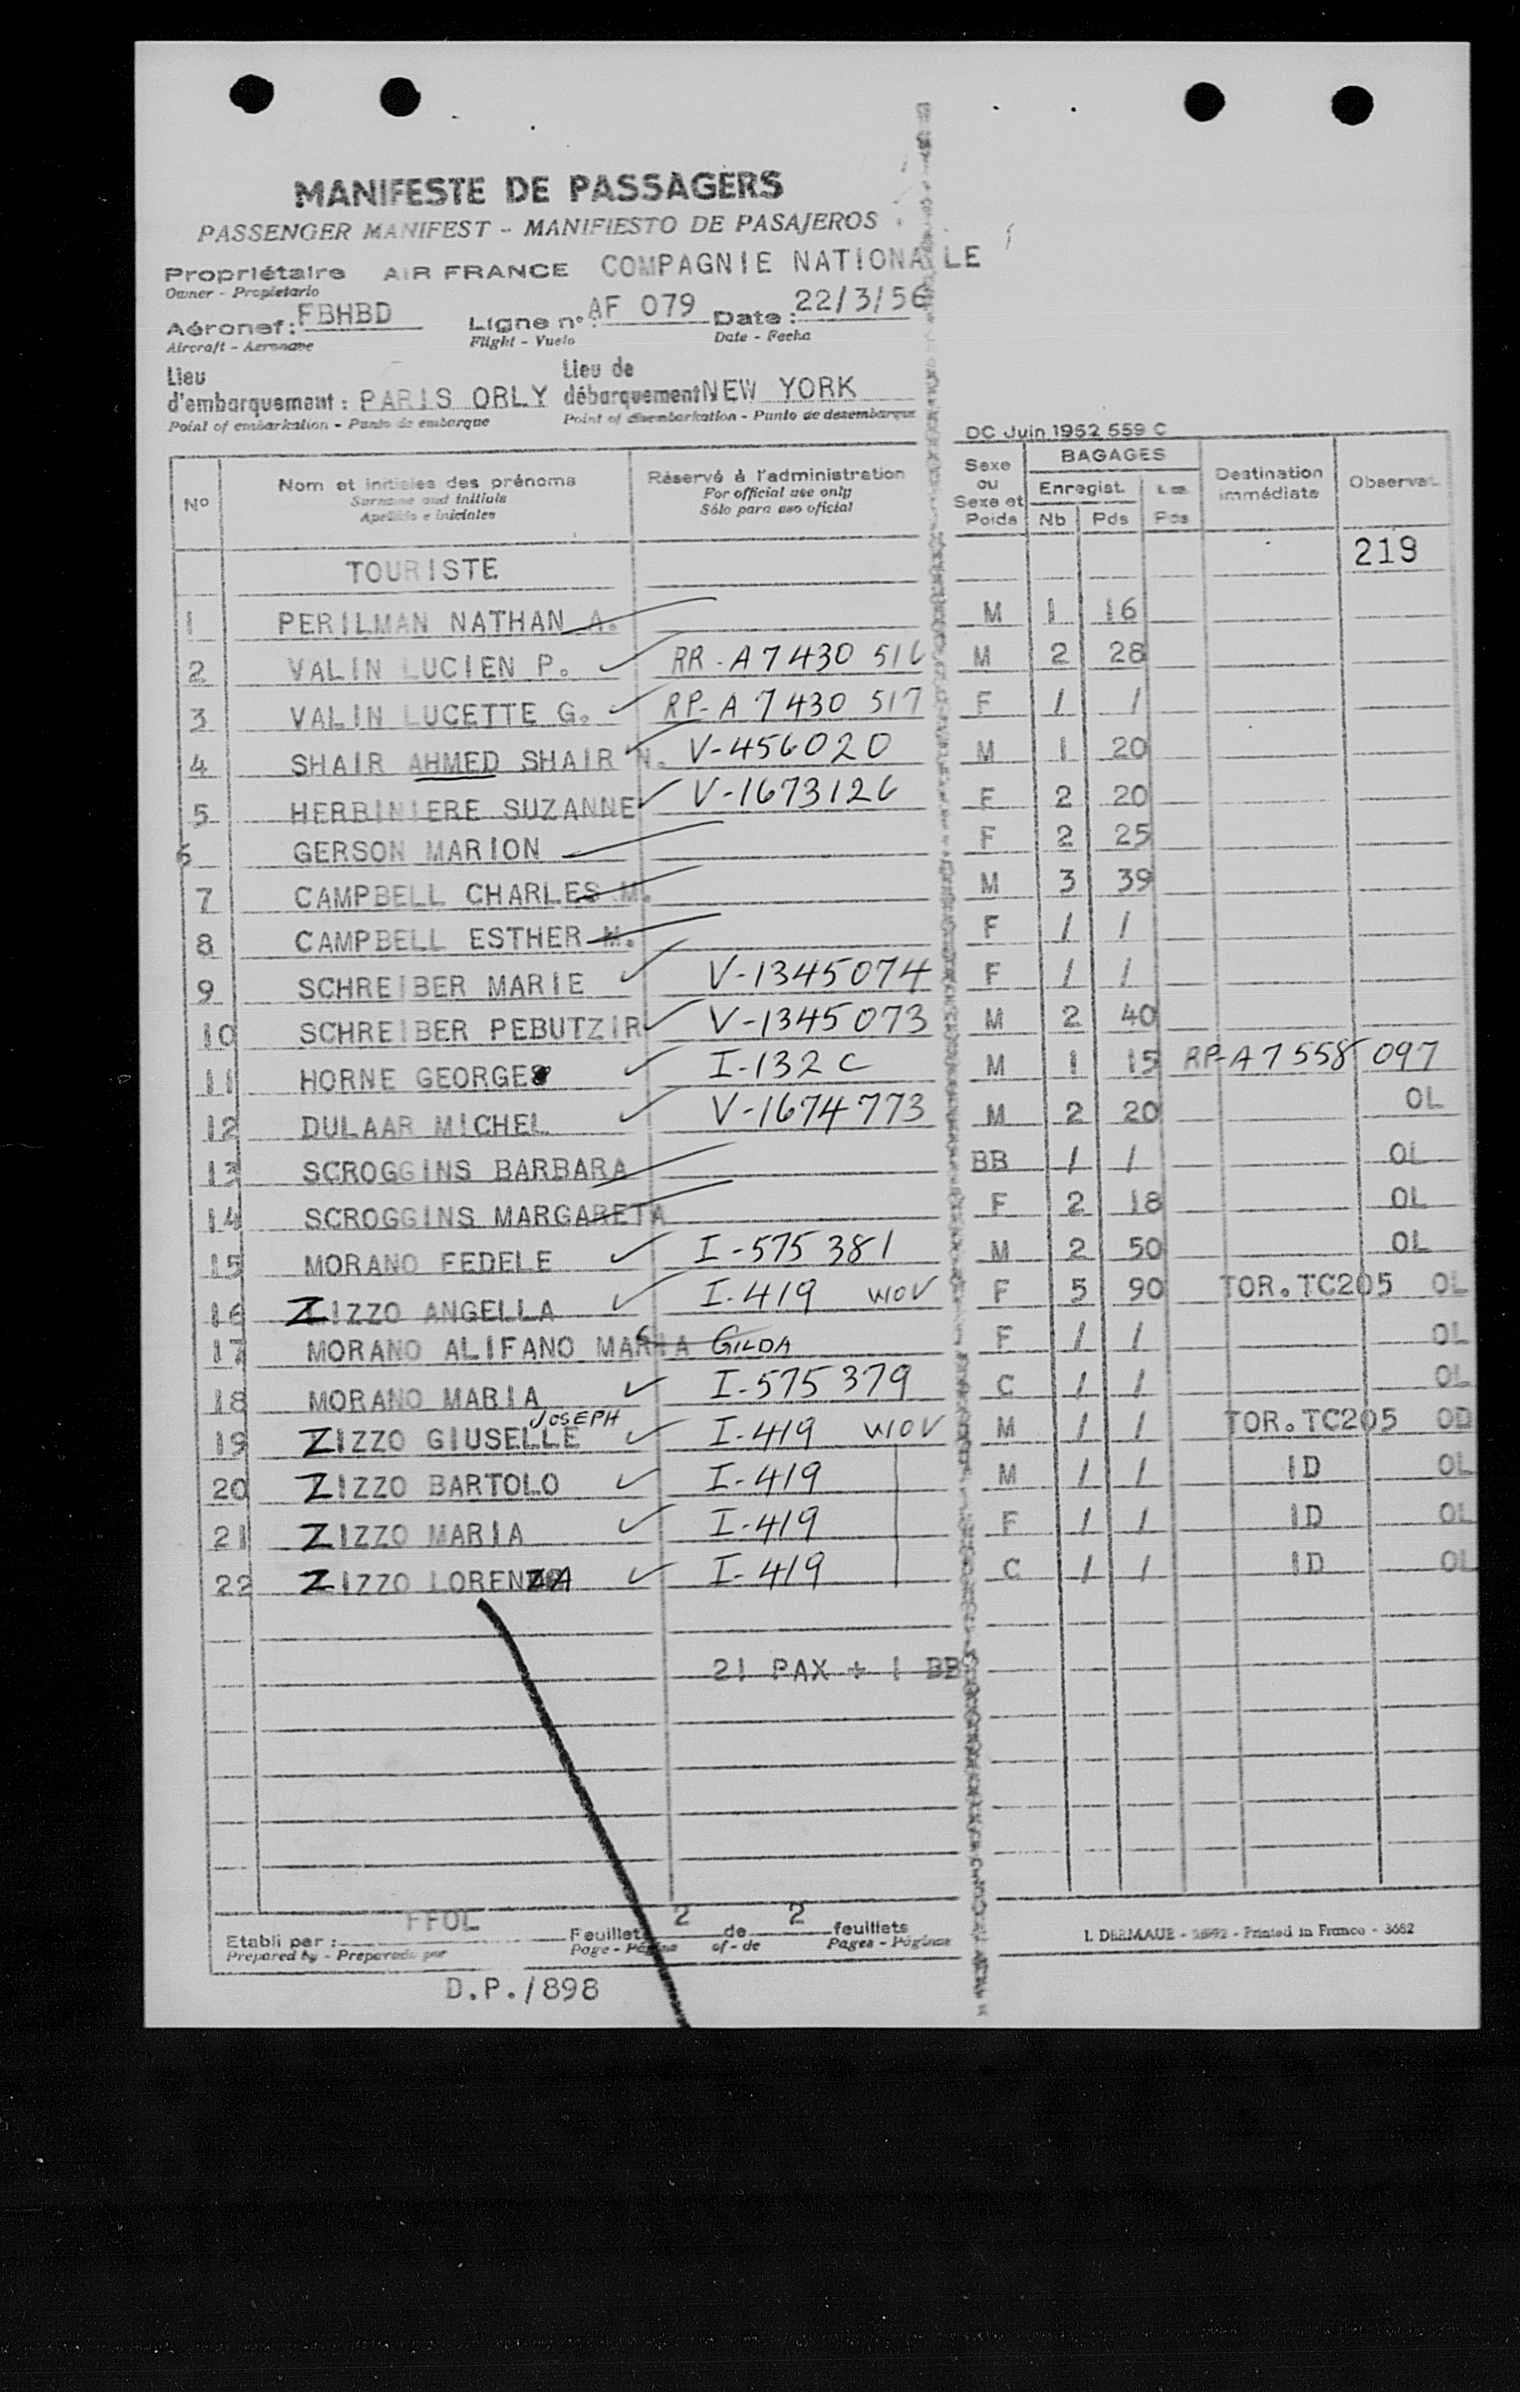 MANIFESTE DE PASSAGERS
PASSENGER MANIFEST - MANIFIESTO DE PASAJEROS
Propriétaire AIR FRANCE COMPAGNIE NATIONALE
Owner - Propietario
Aéronef: FBHBD Ligne n° AF 079 Date: 22/3/56
Aircraft - Aeronave Flight - Vuelo Date - Fecha
Lieu d'embarquement: PARIS ORLY Lieu de débarquement NEW YORK
Point of embarkation - Punto de embarque Point of disembarkation - Punto de desembarque
DC Juin 1952 559 C
Nº Nom et initiales des prénoms Réservé à l'administration Sexe ou Sexe et Poids BAGAGES Destination immédiate Observat.
Surname and initials For official use only Enregist.
Apellido e iniciales Sólo para uso oficial Nb Pds Pds
TOURISTE 219
1 PERILMAN NATHAN A. M 1 16
2 VALIN LUCIEN P. RR-A7430 516 M 2 28
3 VALIN LUCETTE G. RP-A7430 517 F / /
4 SHAIR AHMED SHAIR N. V-456020 M 1 20
5 HERBINIERE SUZANNE V-1673126 F 2 20
6 GERSON MARION F 2 25
7 CAMPBELL CHARLES M. M 3 39
8 CAMPBELL ESTHER M. F / /
9 SCHREIBER MARIE V-1345074 F / /
10 SCHREIBER PEBUTZIR V-1345073 M 2 40
11 HORNE GEORGE I-132 C M 1 15 RP-A7558 097
12 DULAAR MICHEL V-1674773 M 2 20 OL
13 SCROGGINS BARBARA BB / / OL
14 SCROGGINS MARGARETA F 2 18 OL
15 MORANO FEDELE I-575381 M 2 50 OL
16 ZIZZO ANGELLA I-419 WOV F 5 90 TOR.TC205 OL
17 MORANO ALIFANO MARIA GILDA F / / OL
18 MORANO MARIA I-575379 C / / OL
JOSEPH
19 ZIZZO GIUSELLE I-419 WOV M / / TOR.TC205 OD
20 ZIZZO BARTOLO I-419 M / / ID OL
21 ZIZZO MARIA I-419 F / / ID OL
22 ZIZZO LORENZA I-419 C / / ID OL
21 PAX + 1 BB
Etabli par: FFOL Feuillets 2 de 2 feuillets
Prepared by - Preparado por Page - Página of - de Pages - Páginas
I. DERMAUE - Printed in France - 3682
D.P./898